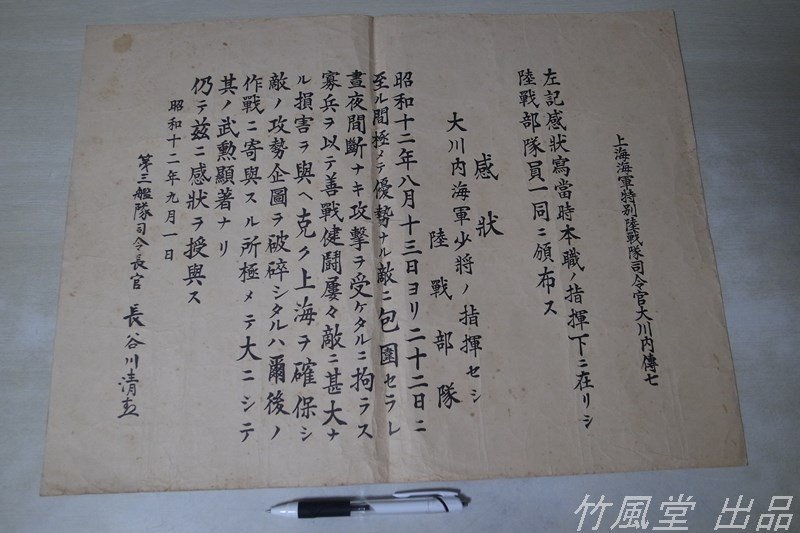 上海海軍特別陸戰隊司令官大川内傳七
左記感狀寫當時本職ノ指揮下ニ在リシ
陸戰部隊員一同ニ頒布ス
感狀
大川内海軍少將ノ指揮セシ
陸戰部隊
昭和十二年八月十三日ヨリ二十二日ニ
至ル間極メテ優勢ナル敵ニ包圍セラレ
晝夜間斷ナキ攻擊ヲ受ケタルニ拘ラス
寡兵ヲ以テ善戰健鬪屢々敵ニ甚大ナ
ル損害ヲ與ヘ克ク上海ヲ確保シ
敵ノ攻勢企圖ヲ破碎シタルハ爾後ノ
作戰ニ寄與スル所極メテ大ニシテ
其ノ武勲顯著ナリ
仍テ茲ニ感狀ヲ授與ス
昭和十二年九月一日
第三艦隊司令長官 長谷川清
竹風堂 出品